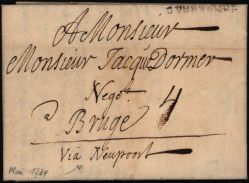 A Monsieur
Monsieur Jacqu Dormer
Negot
a Bruge 4
Via Neuport
Mai 1734